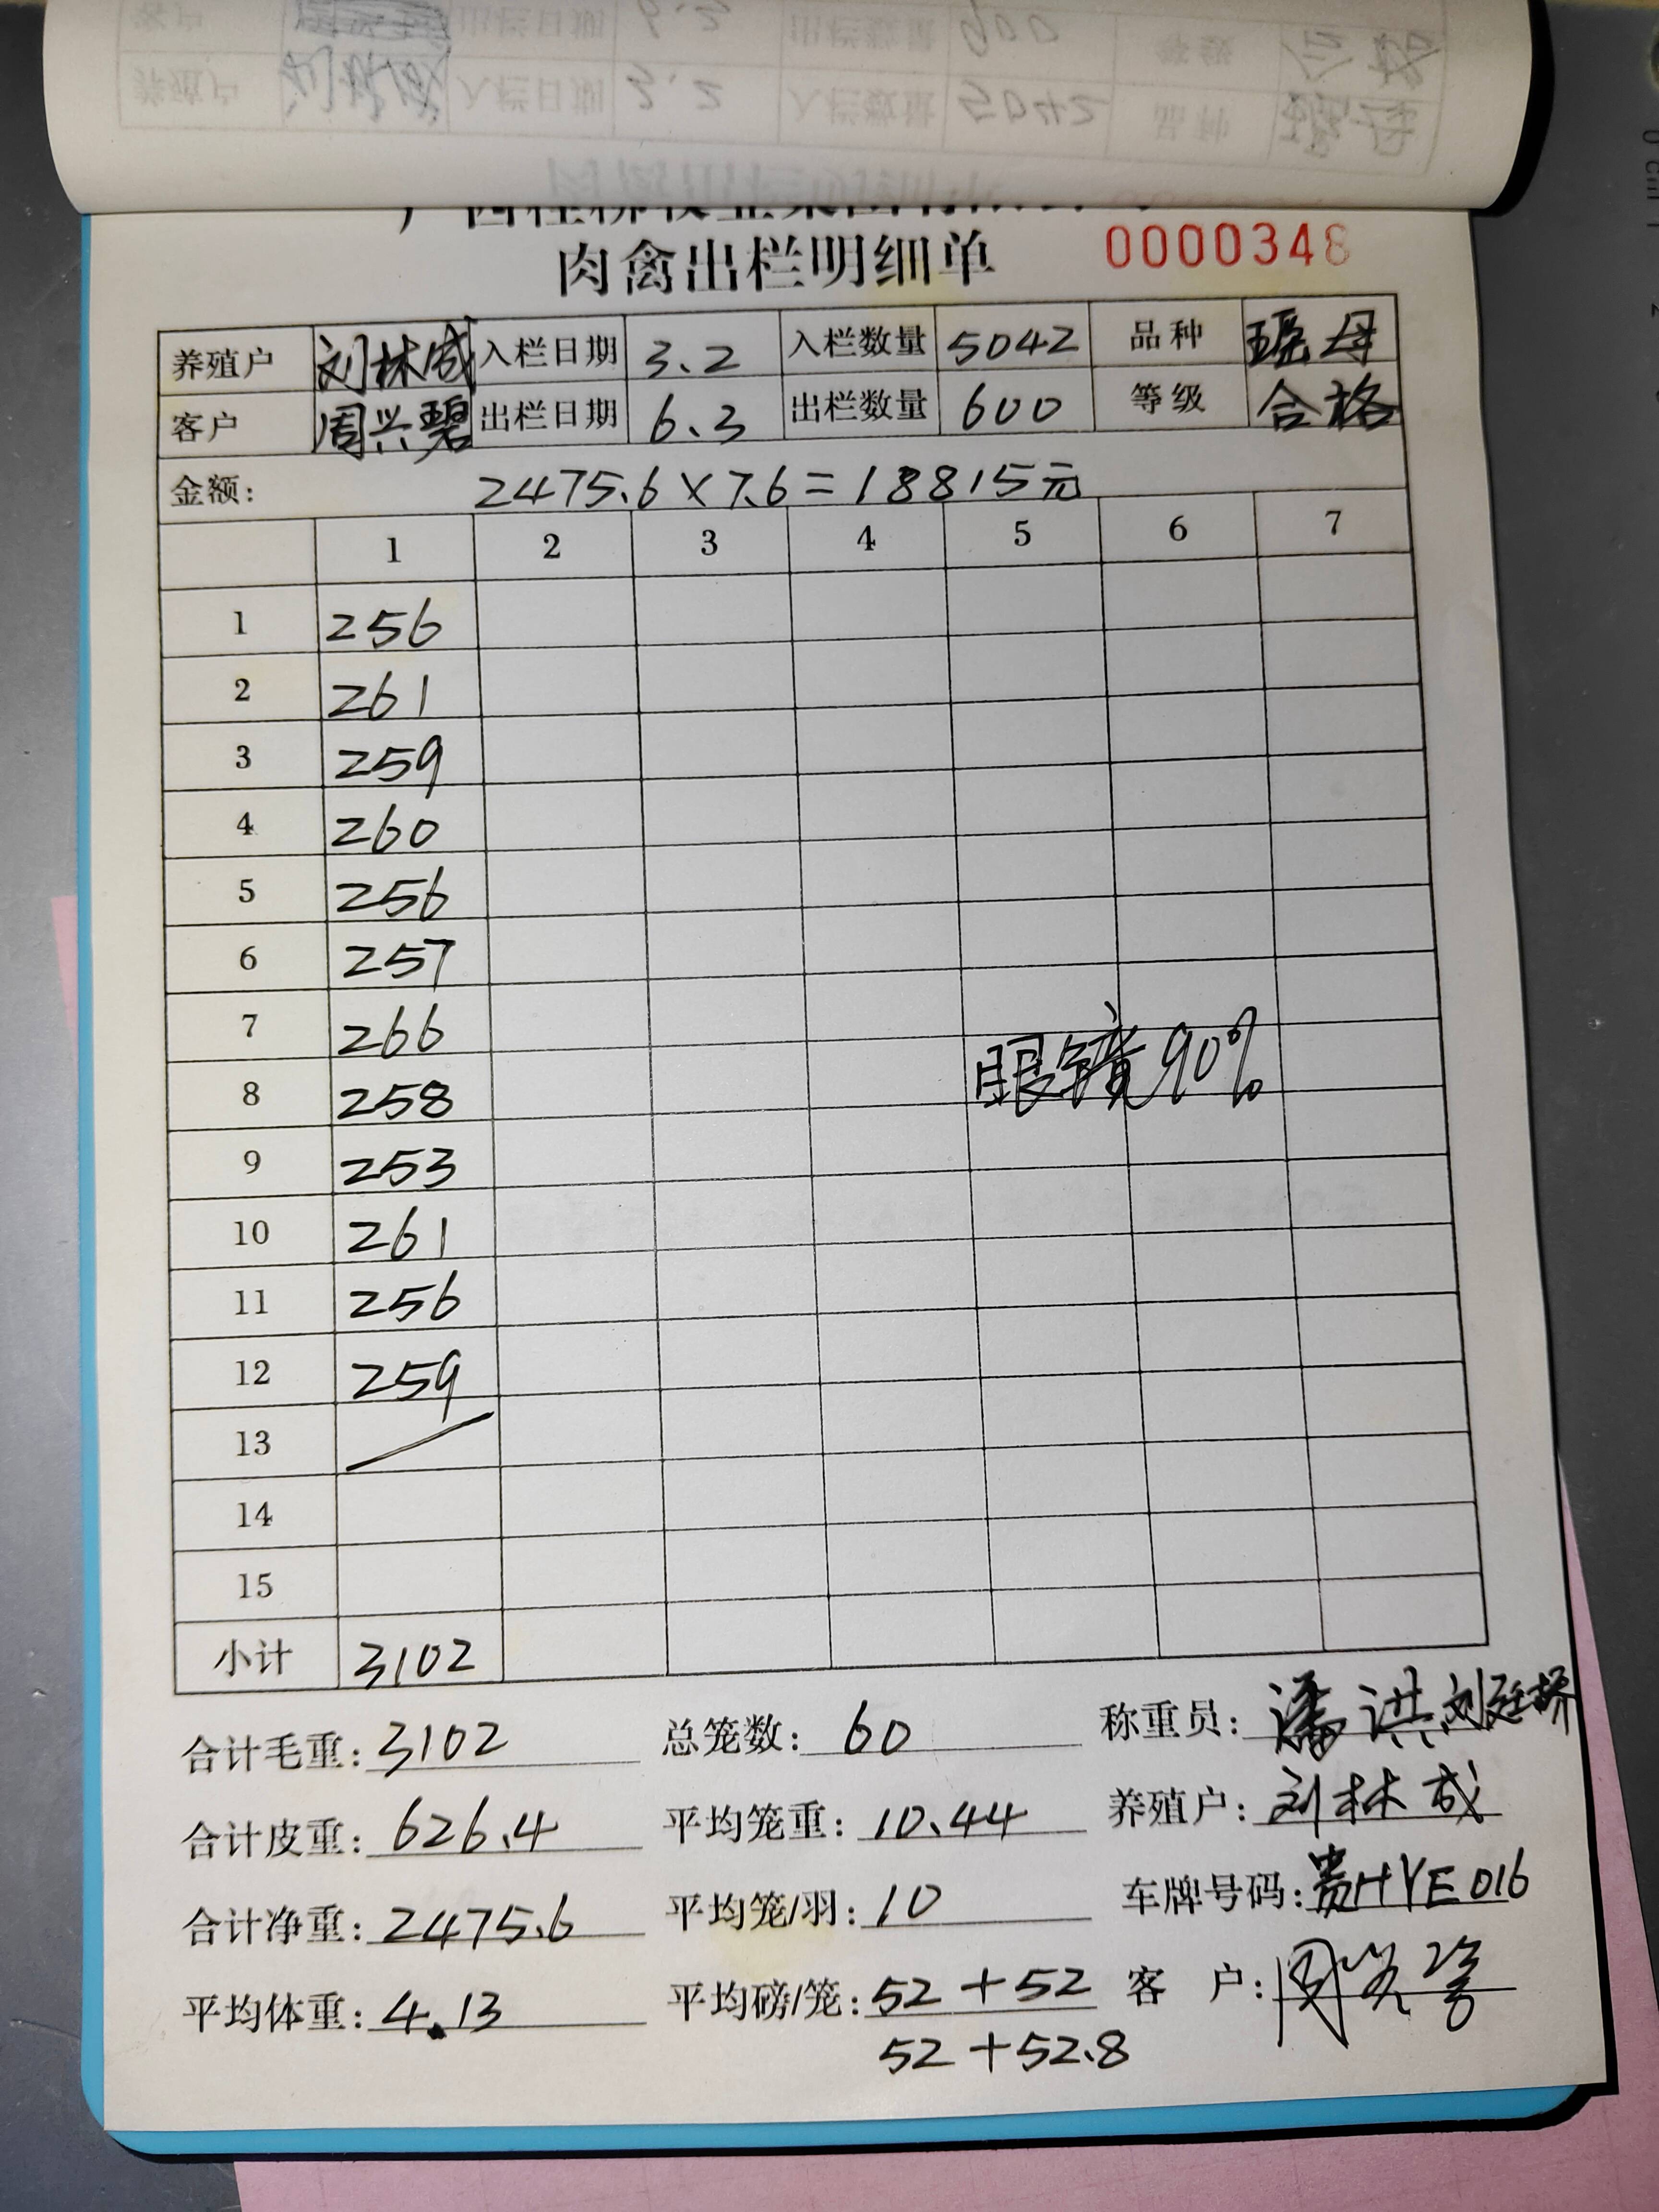 肉禽出栏明细单 0000348
养殖户 刘林成 入栏日期 3.2 入栏数量 5042 品种 瑶母
客户 周兴碧 出栏日期 6.3 出栏数量 600 等级 合格
金额: 2475.6×7.6=18815元
1 2 3 4 5 6 7
1 256
2 261
3 259
4 260
5 256
6 257
7 266
眼镜90%
8 258
9 253
10 261
11 256
12 259
13
14
15
小计 3102
合计毛重: 3102 总笼数: 60 称重员: 潘洪 刘廷桥
合计皮重: 626.4 平均笼重: 10.44 养殖户: 刘林成
合计净重: 2475.6 平均笼/羽: 10 车牌号码: 贵HYE016
平均体重: 4.13 平均磅/笼: 52+52 客户:
52+52.8